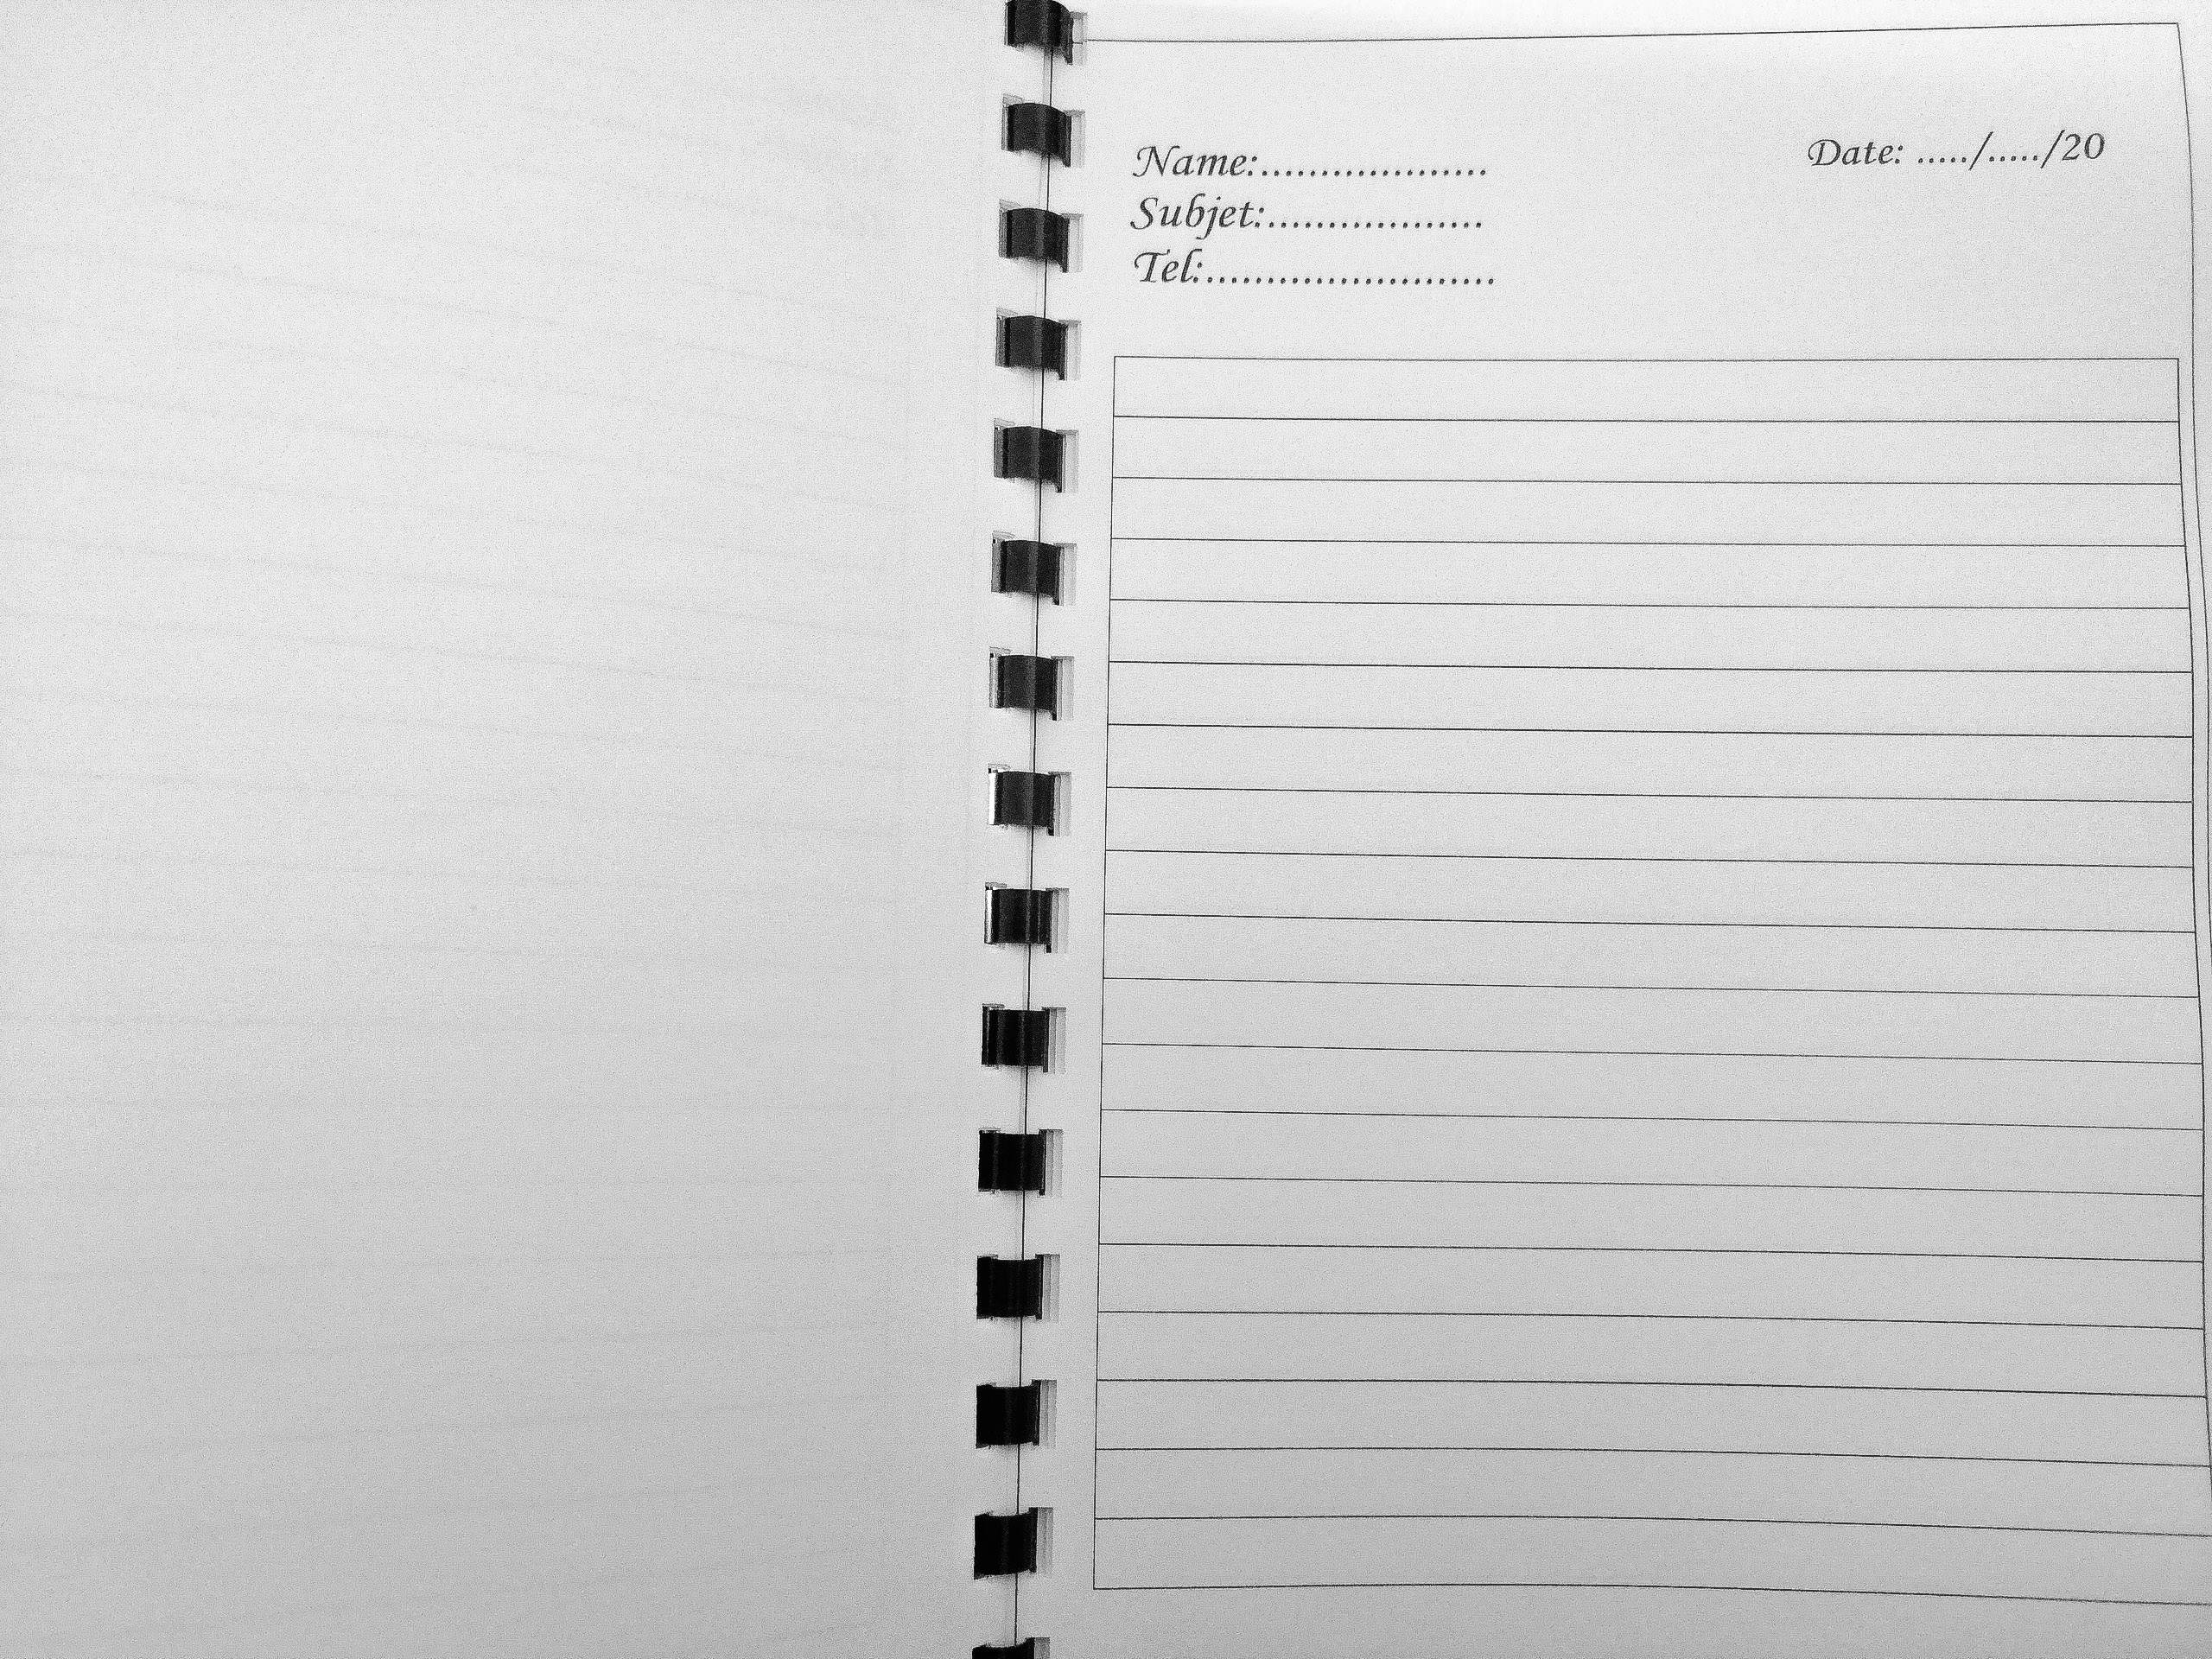 Name:...................
Date: ...../...../20
Subjet:..................
Tel:........................